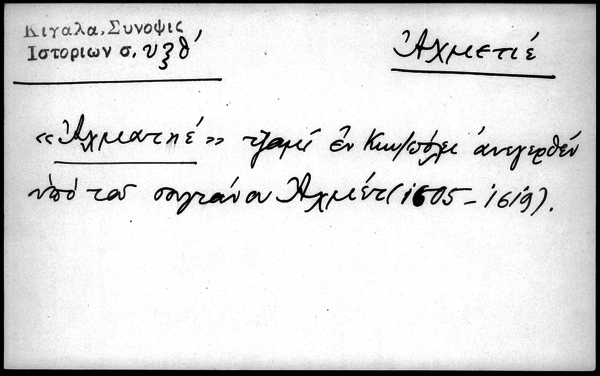 Κιγαλα, Συνοψις
Ιστοριων σ. υξθ΄
Ἀχμετιέ
«Ἀχματιέ» τζαμί ἐν Κων/πόλει ἀνεγερθέν
ὑπό τοῦ σουλτάνου Ἀχμέτ (1605-1619).